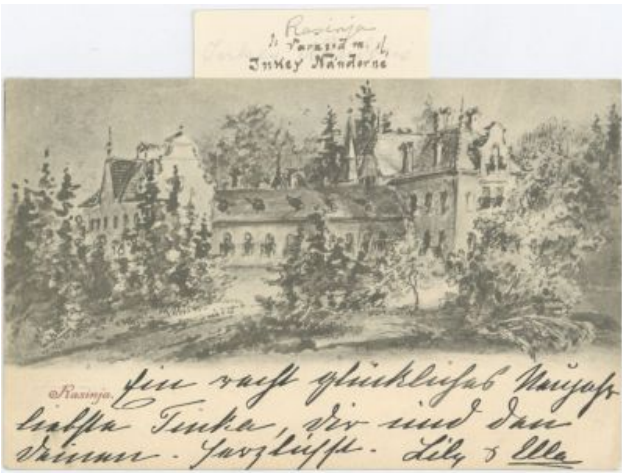 Rasinja
Varasd m.
Inkey Nándorné
Rasinja.
Ein recht glückliches Neujahr
liebste Tinka, dir und den
deinen. Herzlichst. Lily & Ella